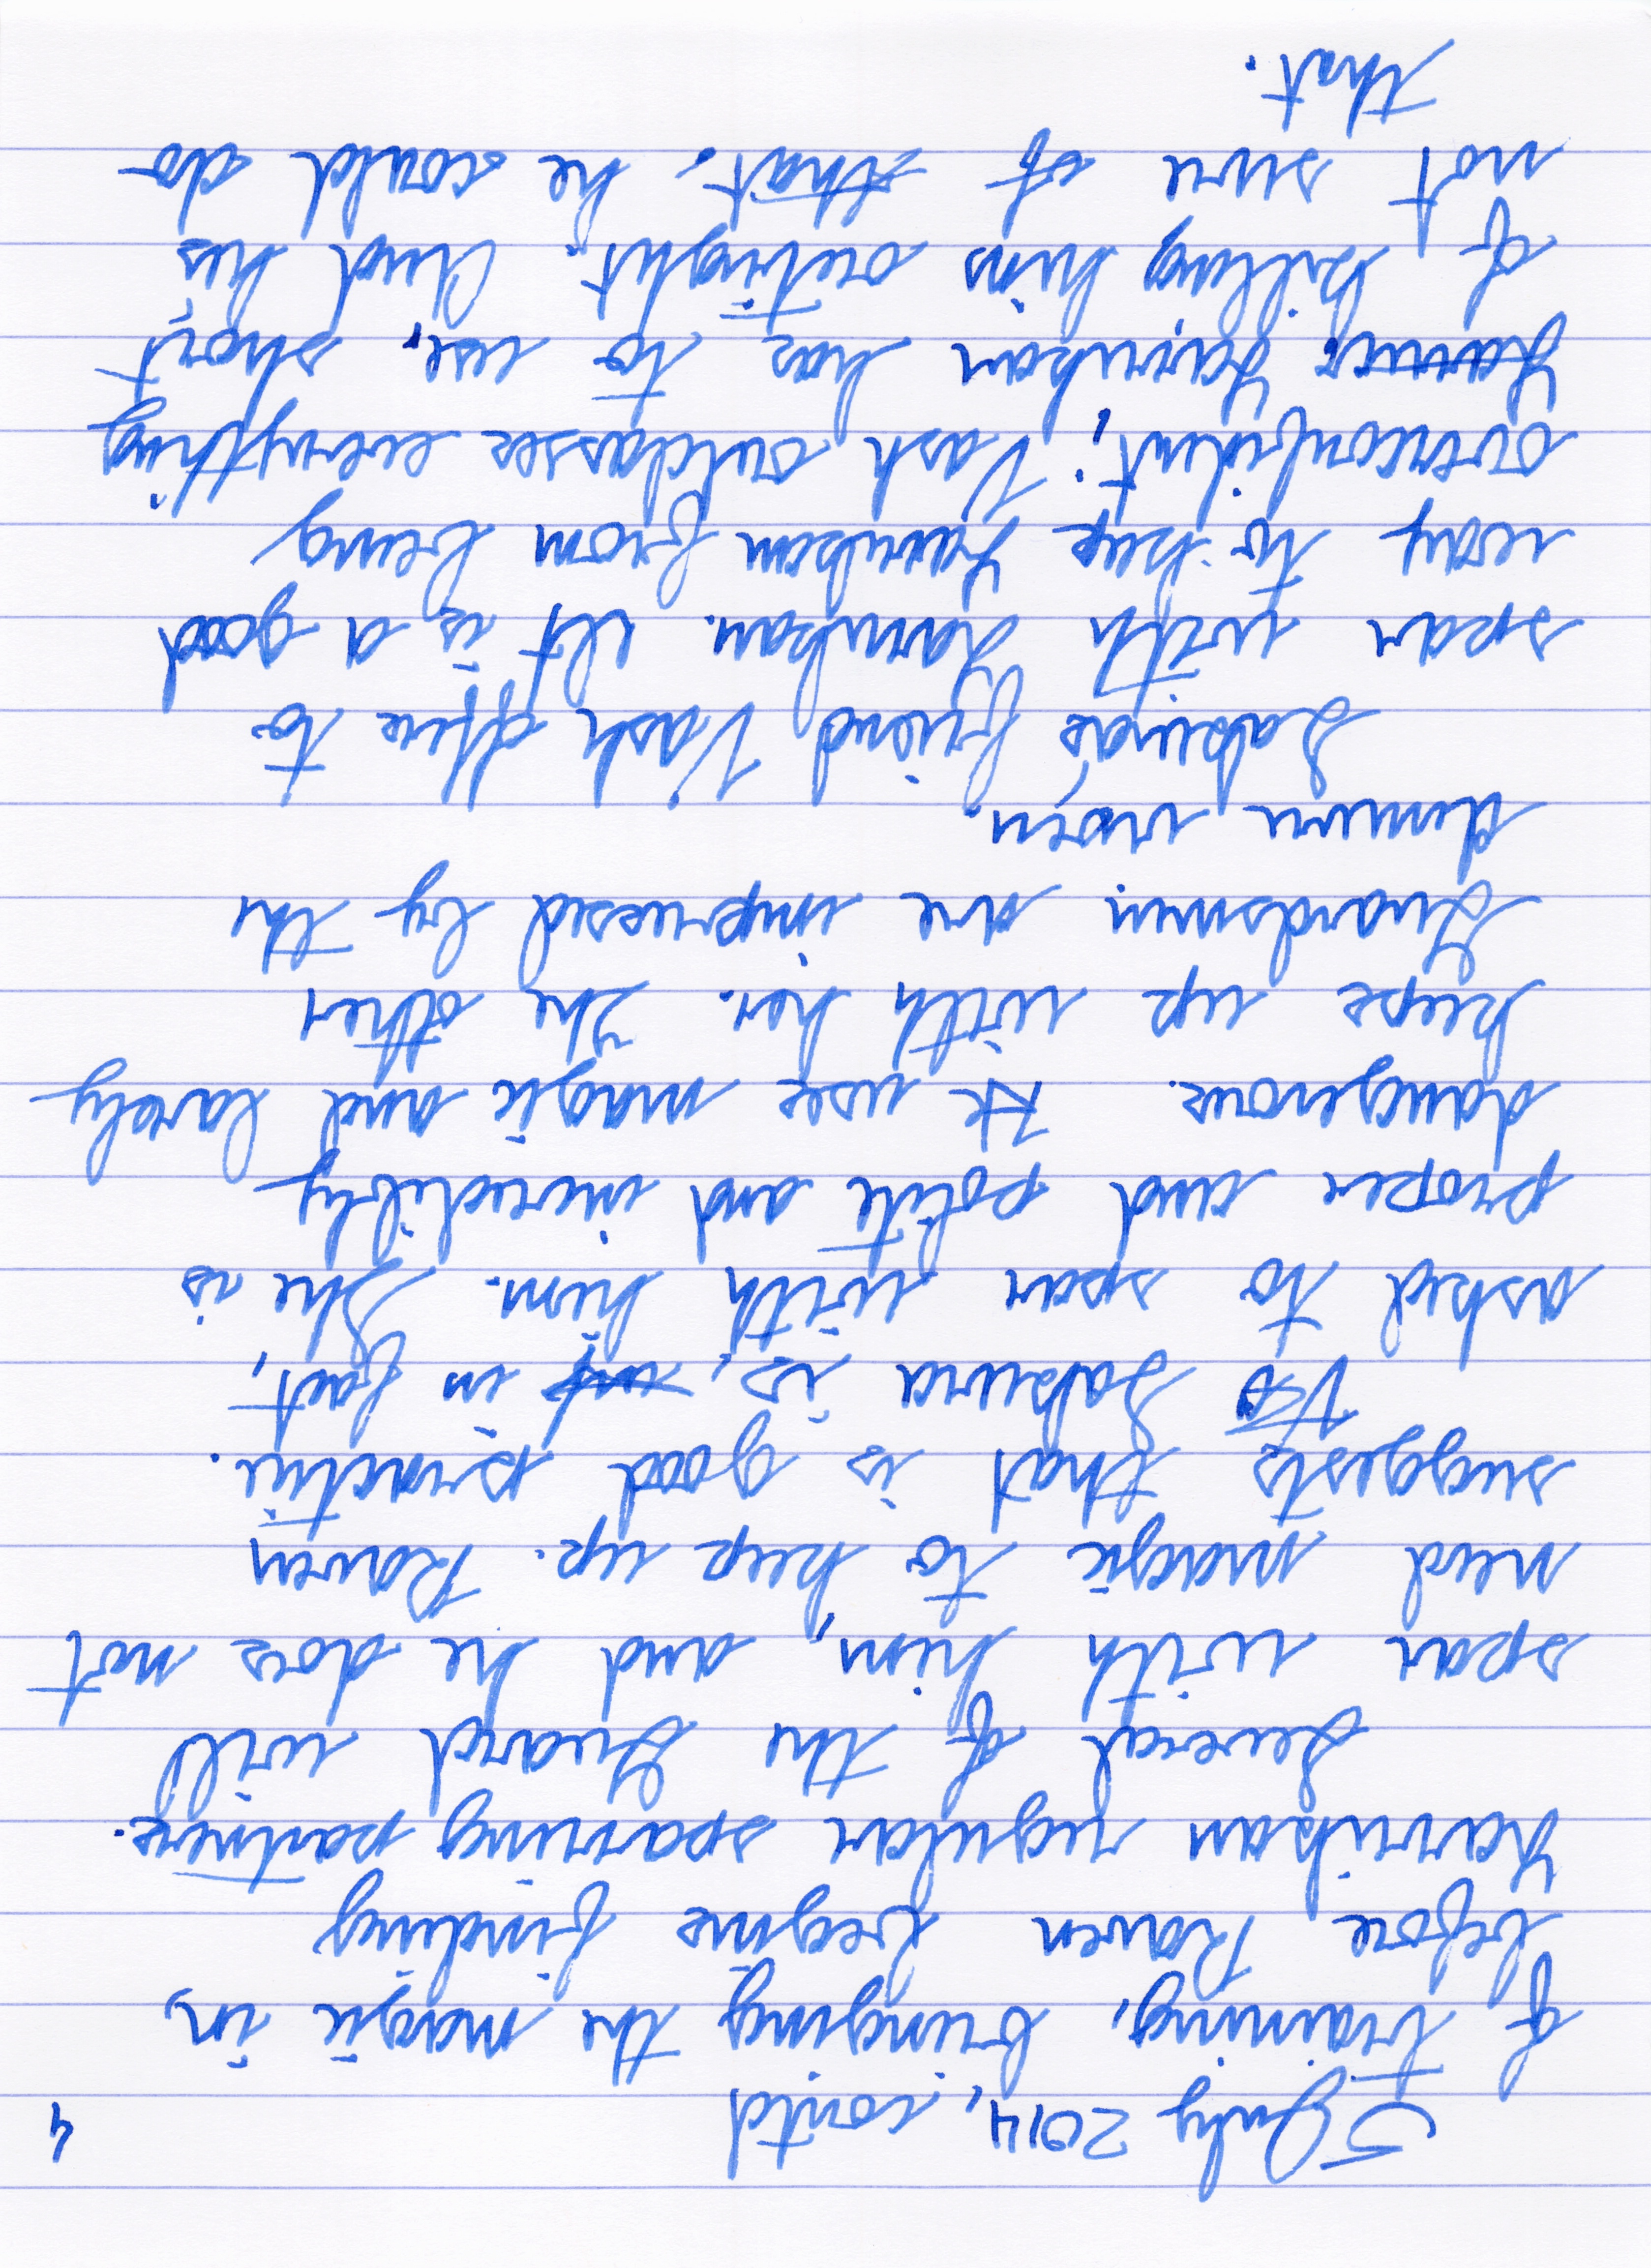 5 July 2014, contd
4
of training, bringing the magic in,
before Raven begins finding
Yarrukan regular sparring partners.
Several of the Guard will
spar with him, and he does not
need magic to keep up. Raven
suggests that is good practice.
Sakura is, in fact,
asked to spar with him. She is
proper and polite and incredibly
dangerous. He uses magic and barely
keeps up with her. The other
Guardsmen are impressed by the
demure woman.
Sakura's friend Vash offers to
spar with Yarrukan. It is a good
way to keep Yarrukan from being
overconfident; Vash outclasses everything
Yarrukan has to use, short
of killing him outright. And he's
not sure of that. he could do
that.